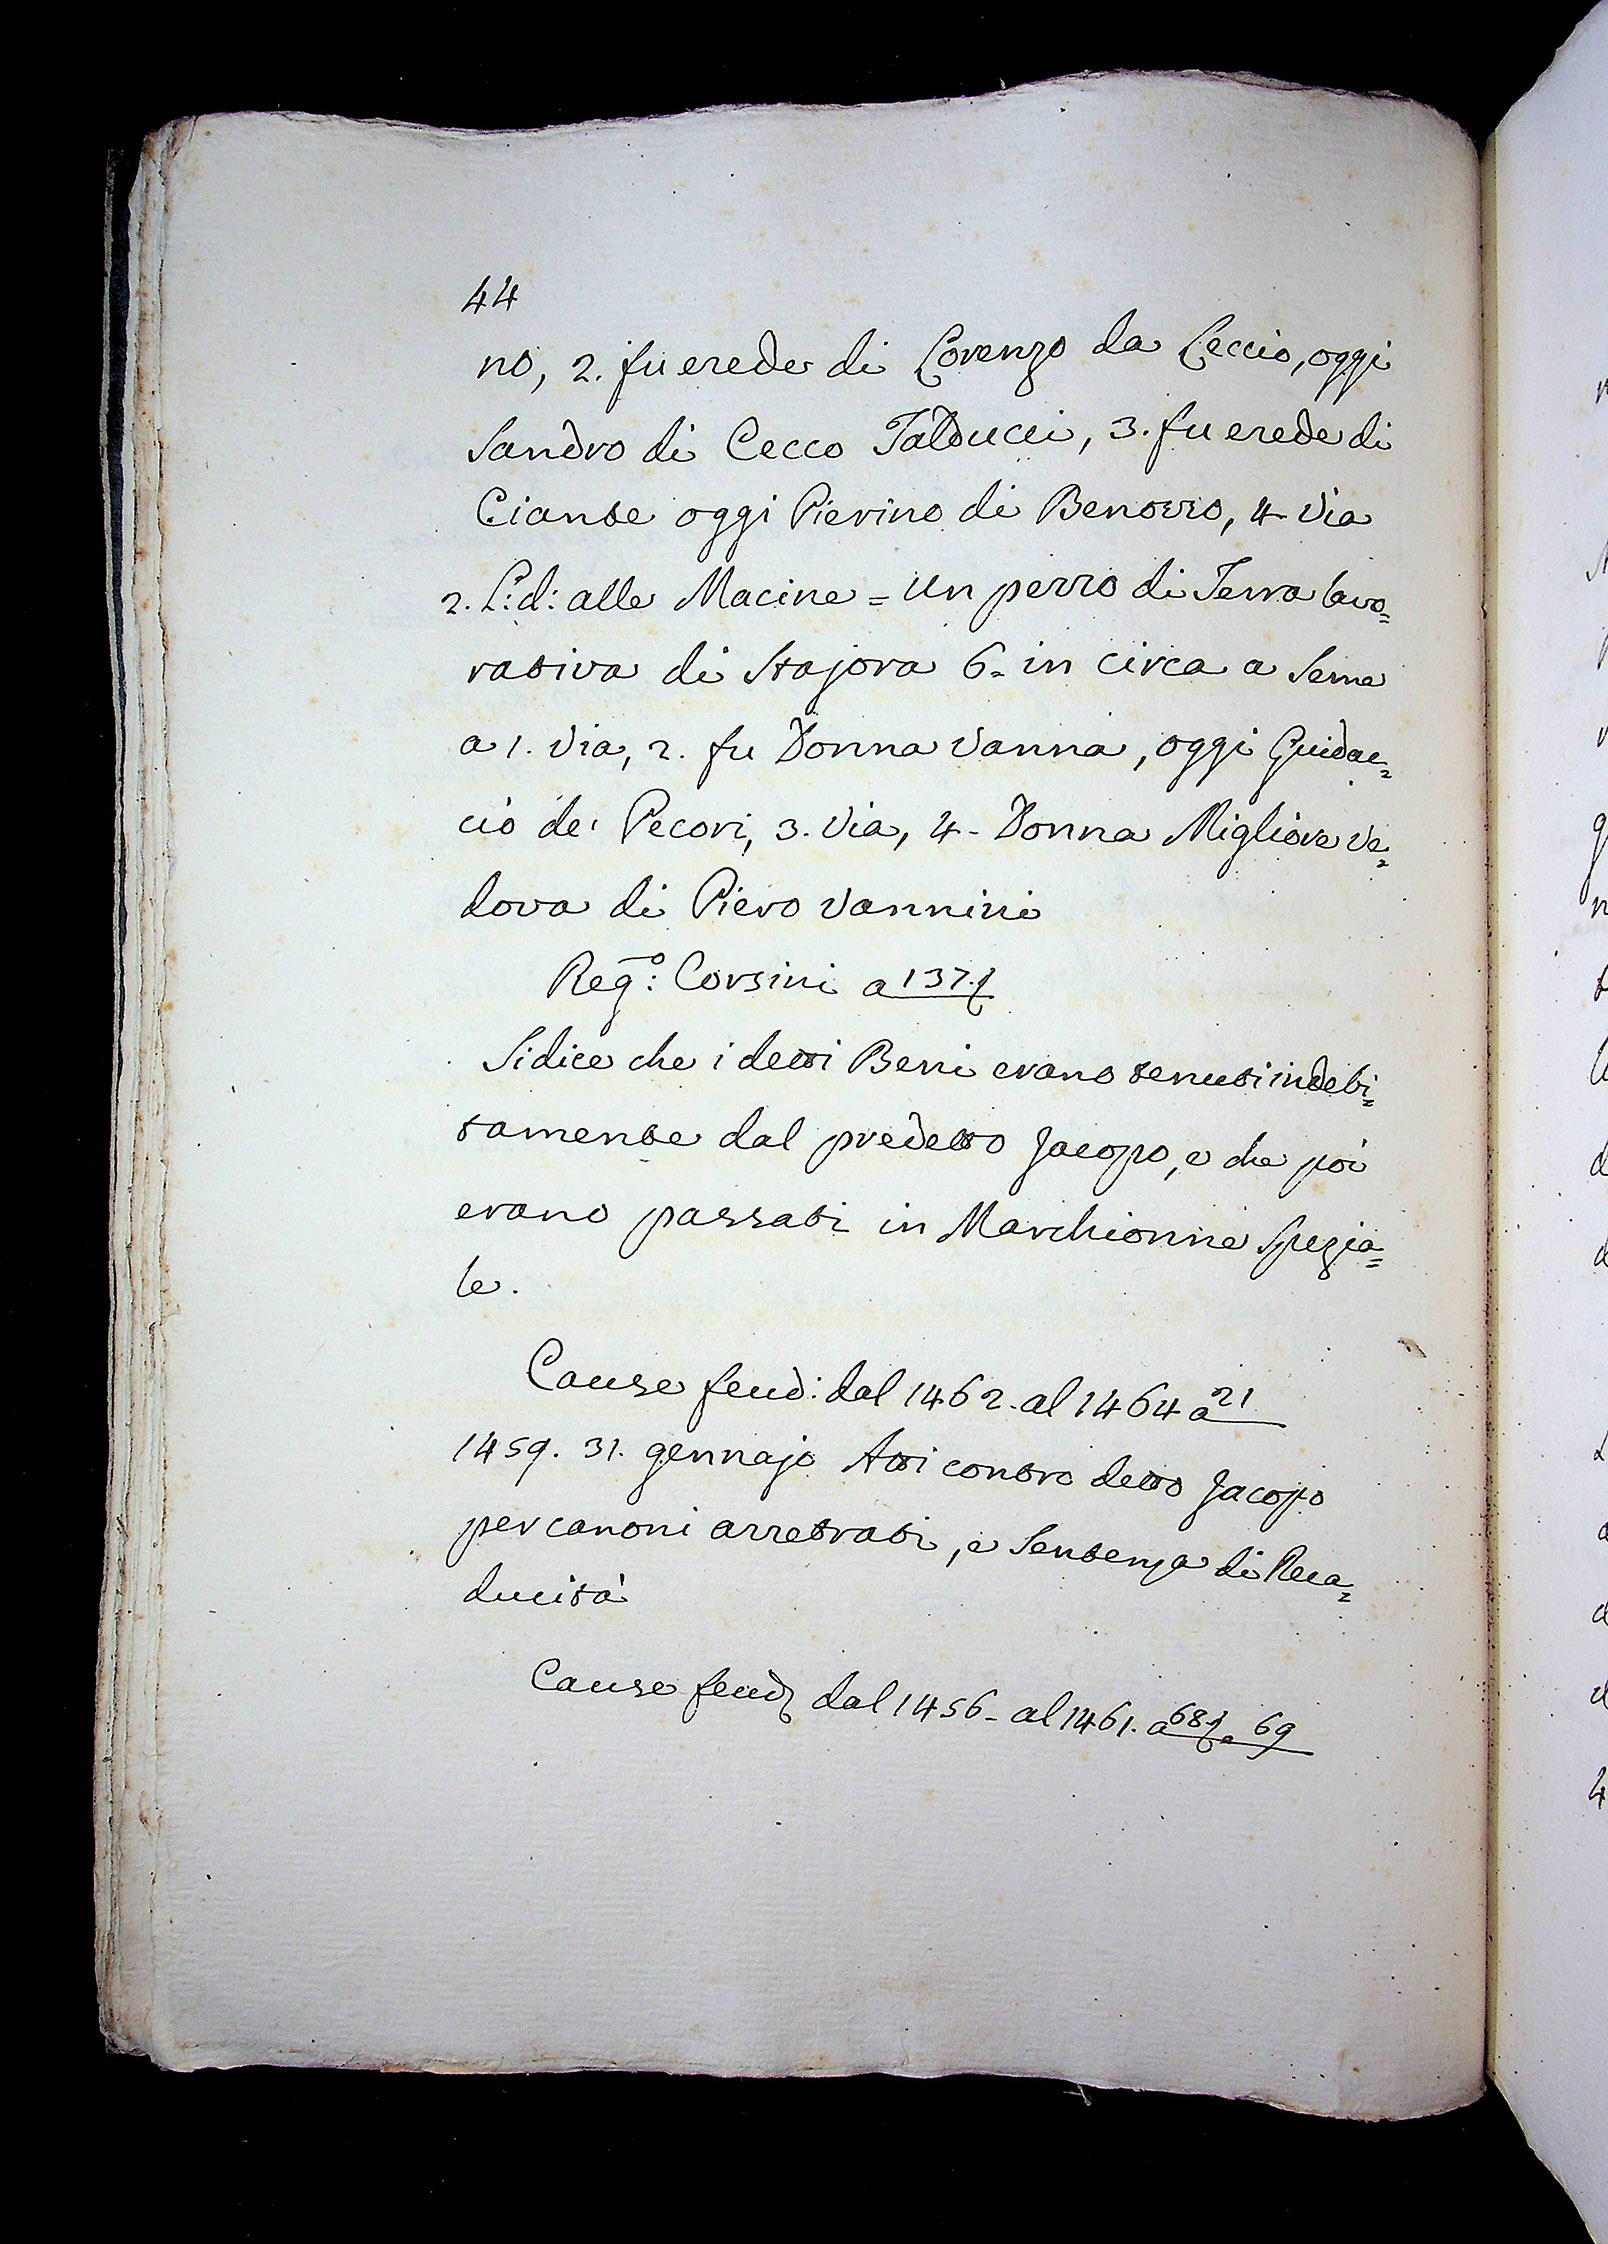 44
no, 2. fu erede di Lorenzo da Leccio, oggi
Sandro di Cecco Talducci, 3. fu erede di
Ciante oggi Pierino di Benozzo, 4. Via
2. L: d: alle Macine = Un pezzo di Terra lavo=
rativa di Stajora 6. in circa a Seme
a 1. Via, 2. fu Donna Vanna, oggi Guidac=
cio de' Pecori, 3. Via, 4. Donna Migliore Ve=
dova di Piero Vannini
Reg.º: Corsini a 137.t
Si dice che i detti Beni erano tenuti indebi=
tamente dal predetto Jacopo, e che poi
erano passati in Marchionne Spezia=
le.
Cause feud: dal 1462. al 1464 a 21
1459. 31. gennajo Atti contro detto Jacopo
per canoni arretrati, e Sentenza di Reca=
ducità
Cause feud: dal 1456. al 1461. a 68t. e 69